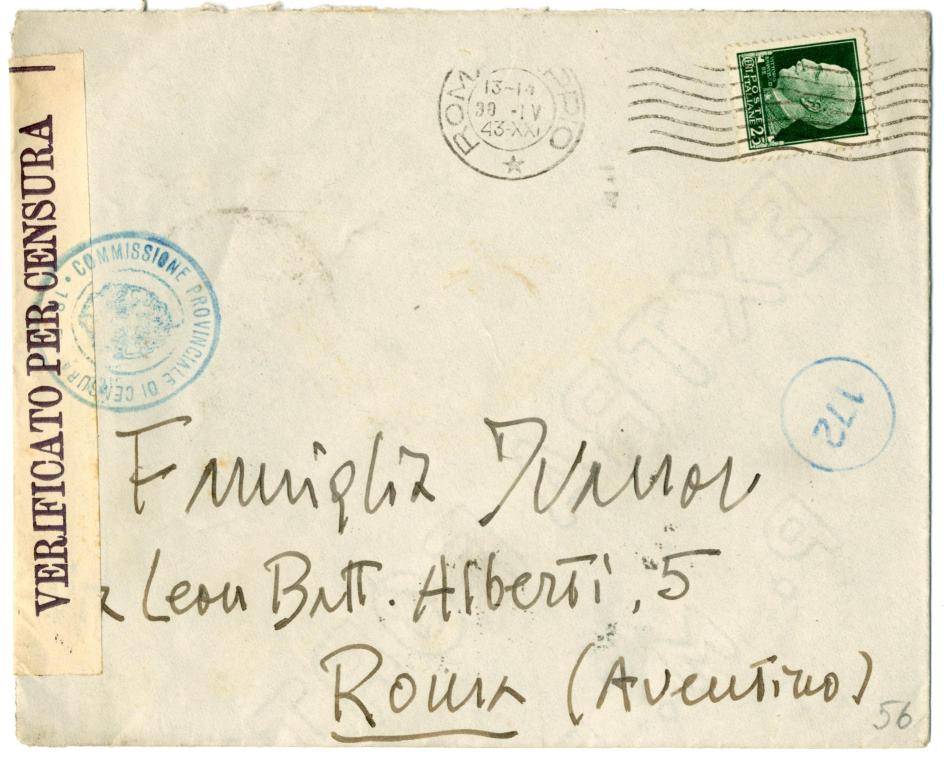 VERIFICATO PER CENSURA
COMMISSIONE PROVINCIALE DI CENSURA
ROM
13-14
30-IV
43-XXI
POSTE ITALIANE
172
Famiglia
Leon Batt. Alberti, 5
Roma (Aventino)
56